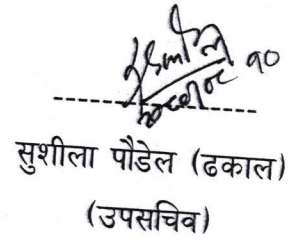 १०
सुशीला पौडेल (ढकाल)
(उपसचिव)